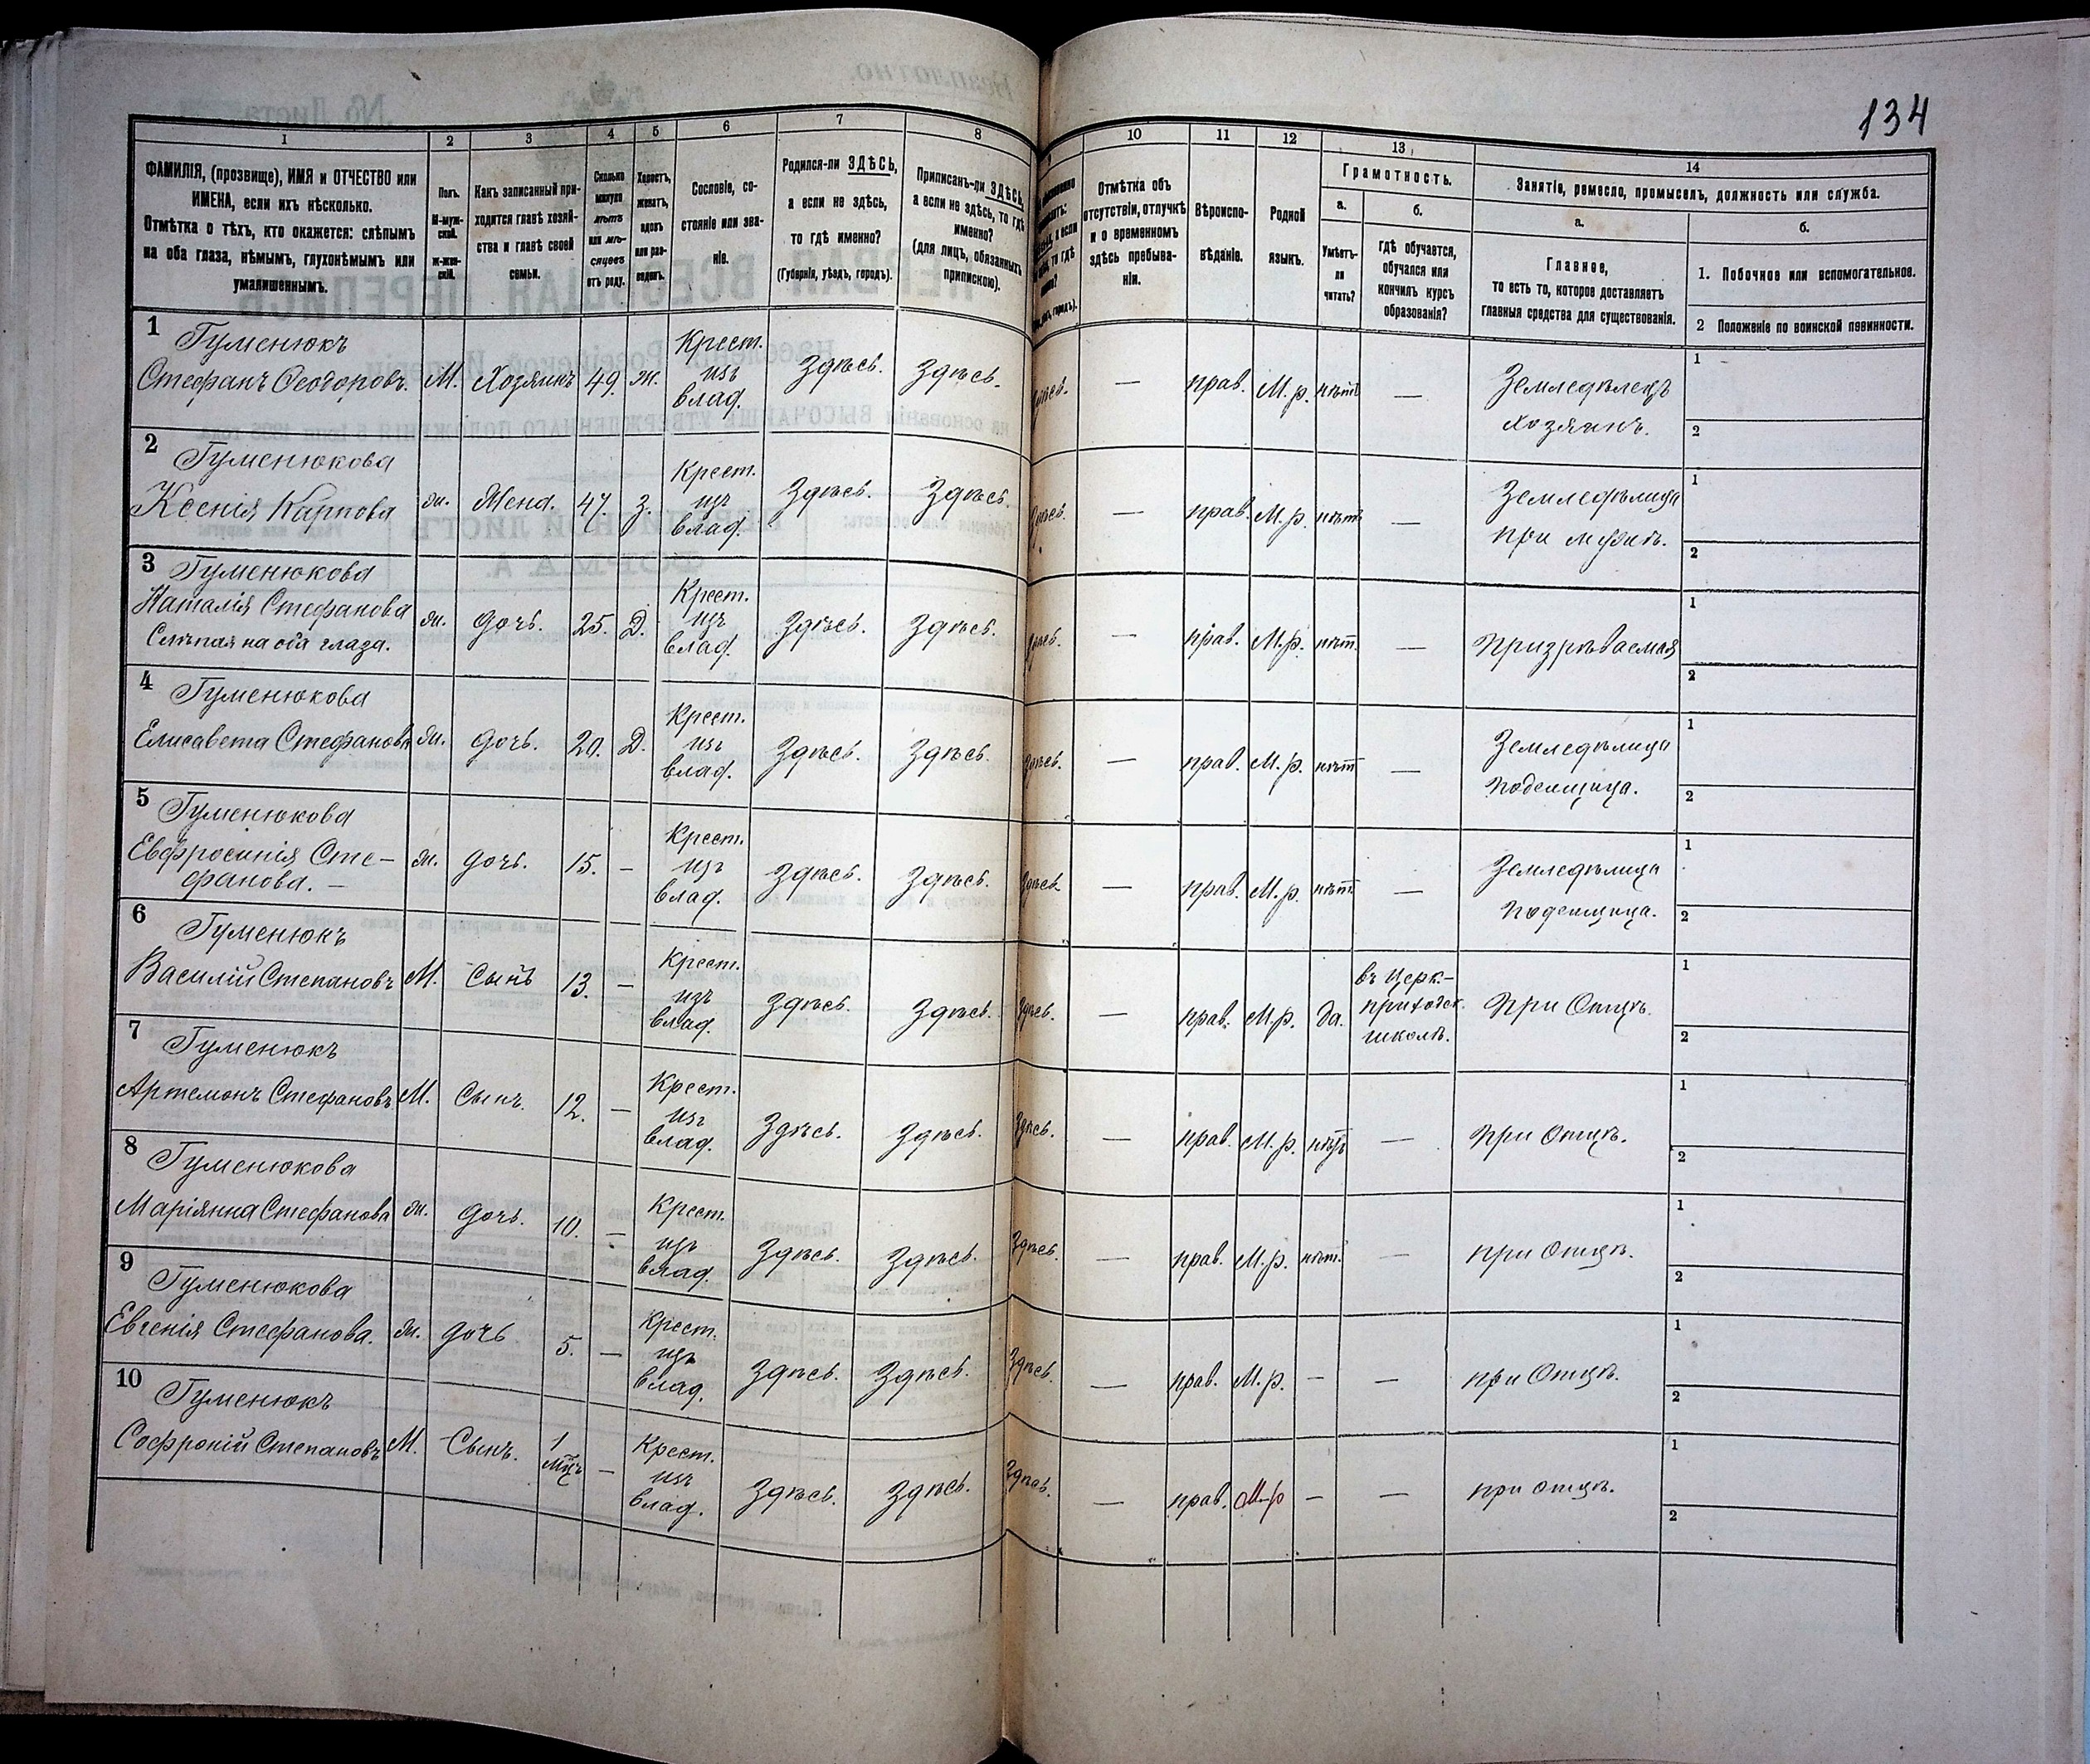 134
1 2 3 4 5 6 7 8 10 11 12 13 14
ФАМИЛІЯ, (прозвище), ИМЯ и ОТЧЕСТВО или
ИМЕНА, если ихъ нѣсколько.
Отмѣтка о тѣхъ, кто окажется: слѣпымъ
на оба глаза, нѣмымъ, глухонѣмымъ или
умалишеннымъ.
Полъ.
М-муж-
ской.
Ж-жен-
скій.
Какъ записанный при-
ходится главѣ хозяй-
ства и главѣ своей
семьи.
Сколько
минуло
лѣтъ
или мѣ-
сяцевъ
отъ роду.
Холостъ,
женатъ,
вдовъ
или раз-
веденъ.
Сословіе, со-
стояніе или зва-
ніе.
Родился-ли ЗДѢСЬ,
а если не здѣсь,
то гдѣ именно?
(Губернія, уѣздъ, городъ).
Приписанъ-ли ЗДѢСЬ,
а если не здѣсь, то гдѣ
именно?
(для лицъ, обязанныхъ
припискою).
Отмѣтка объ
отсутствіи, отлучкѣ
и о временномъ
здѣсь пребыва-
ніи.
Вѣроиспо-
вѣданіе.
Родной
языкъ.
Грамотность.
а.
Умѣетъ-
ли
читать?
б.
гдѣ обучается,
обучался или
кончилъ курсъ
образованія?
Занятіе, ремесло, промыселъ, должность или служба.
а.
Главное,
то есть то, которое доставляетъ
главныя средства для существованія.
б.
1. Побочное или вспомогательное.
2 Положеніе по воинской повинности.
1 Гуменюкъ
Стефанъ Ѳеодоровъ. М. Хозяинъ 49. ж. Крест. изъ влад. Здѣсь. Здѣсь. Здѣсь. — прав. М.р. нѣтъ — Земледѣлецъ хозяинъ. 1 2
2 Гуменюкова
Ксенія Карпова ж. Жена. 47. з. Крест. изъ влад. Здѣсь. Здѣсь. Здѣсь. — прав. М.р. нѣтъ — Земледѣлица при мужѣ. 1 2
3 Гуменюкова
Наталія Стефанова
Слѣпая на оба глаза. ж. дочь. 25. Д. Крест. изъ влад. Здѣсь. Здѣсь. Здѣсь. — прав. М.р. нѣт. — Призрѣваемая 1 2
4 Гуменюкова
Елисавета Стефанова ж. дочь. 20. Д. Крест. изъ влад. Здѣсь. Здѣсь. Здѣсь. — прав. М.р. нѣт — Земледѣлица Поденщица. 1 2
5 Гуменюкова
Евфросинія Сте-
фанова. — ж. дочь. 15. — Крест. изъ влад. Здѣсь. Здѣсь. Здѣсь. — прав. М.р. нѣт — Земледѣлица Поденщица. 1 2
6 Гуменюкъ
Василій Степановъ М. Сынъ 13. — Крест. изъ влад. Здѣсь. Здѣсь. Здѣсь. — прав. М.р. да. въ Церк.- приходск. школѣ. При Отцѣ. 1 2
7 Гуменюкъ
Артемонъ Стефановъ М. Сынъ. 12. — Крест. изъ влад. Здѣсь. Здѣсь. Здѣсь. — прав. М.р. нѣтъ — При Отцѣ. 1 2
8 Гуменюкова
Маріянна Стефанова ж. дочь. 10. — Крест. изъ влад. Здѣсь. Здѣсь. Здѣсь. — прав. М.р. нѣт. — при Отцѣ. 1 2
9 Гуменюкова
Евгенія Стефанова. ж. дочь 5. — Крест. изъ влад. Здѣсь. Здѣсь. Здѣсь. — прав. М.р. — — при Отцѣ. 1 2
10 Гуменюкъ
Софроній Степановъ М. Сынъ. 1 мцъ — Крест. изъ влад. Здѣсь. Здѣсь. Здѣсь. — прав. М.р — — при отцѣ. 1 2